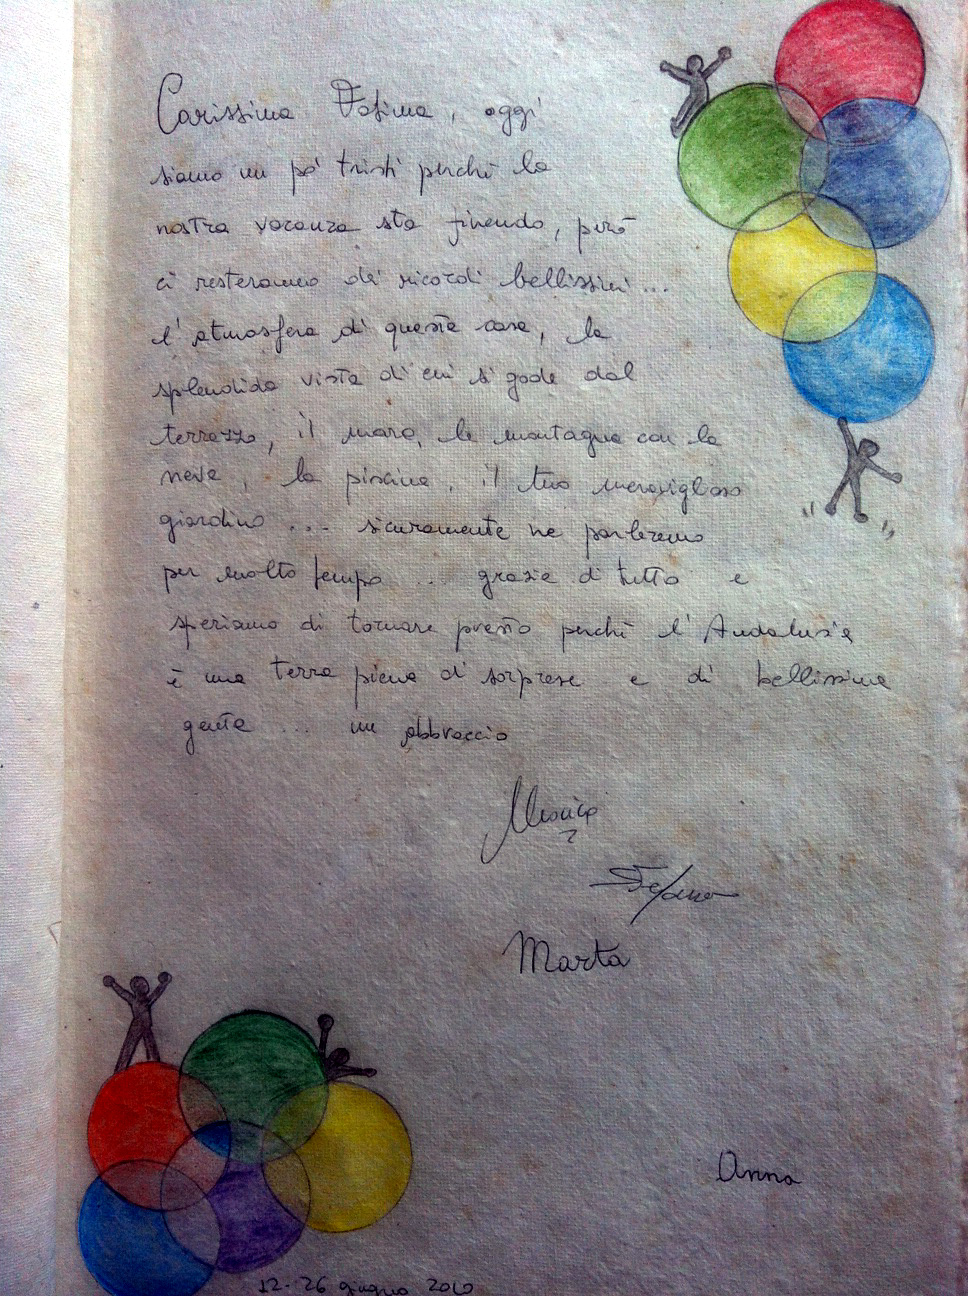 Carissima Fatima, oggi
siamo un po' tristi perché la
nostra vacanza sta finendo, però
ci resteranno dei ricordi bellissimi...
l'atmosfera di questa casa, la
splendida vista di cui si gode dal
terrazzo, il mare, le montagne con la
neve, la piscina, il tuo meraviglioso
giardino ... sicuramente ne parleremo
per molto tempo ... grazie di tutto e
speriamo di tornare presto perché l'Andalusia
è una terra piena di sorprese e di bellissima
gente ... un abbraccio
Monica
Stefano
Marta
Anna
12-26 giugno 2010